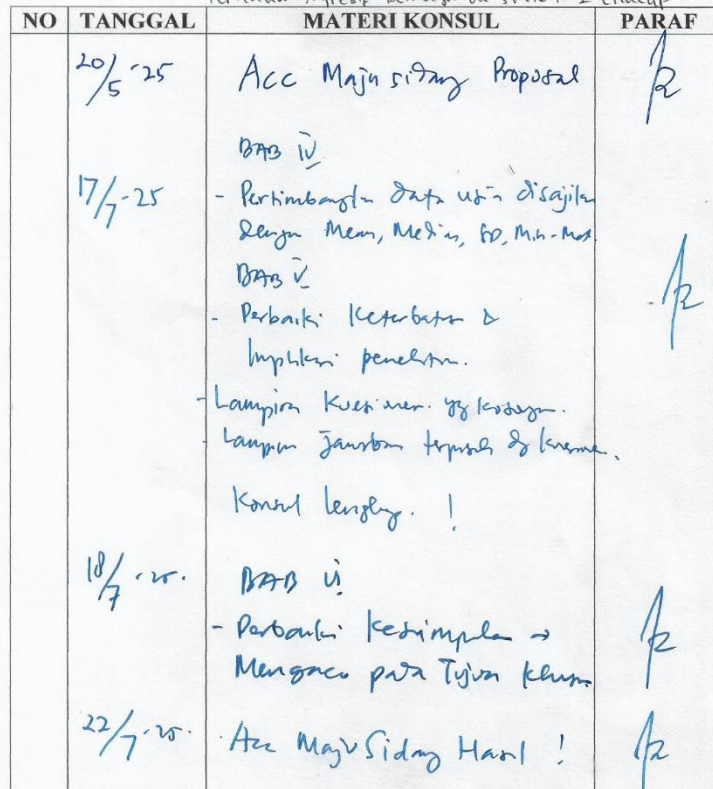 NO TANGGAL MATERI KONSUL PARAF
20/5-25 Acc Maju sidang Proposal
BAB IV
17/7-25 - Pertimbangkan data usia disajikan
dengan Mean, Median, SD, Min-Max
BAB V
- Perbaiki Keterbatasan &
Implikasi penelitian.
- Lampiran Kuesioner yg kosong.
- Lampiran Jawaban terpisah dg kuesioner.
Konsul lengkap. !
18/7-25. BAB VI
- Perbaiki Kesimpulan →
Mengacu pada Tujuan Khusus
22/7-25. Acc Maju Sidang Hasil !